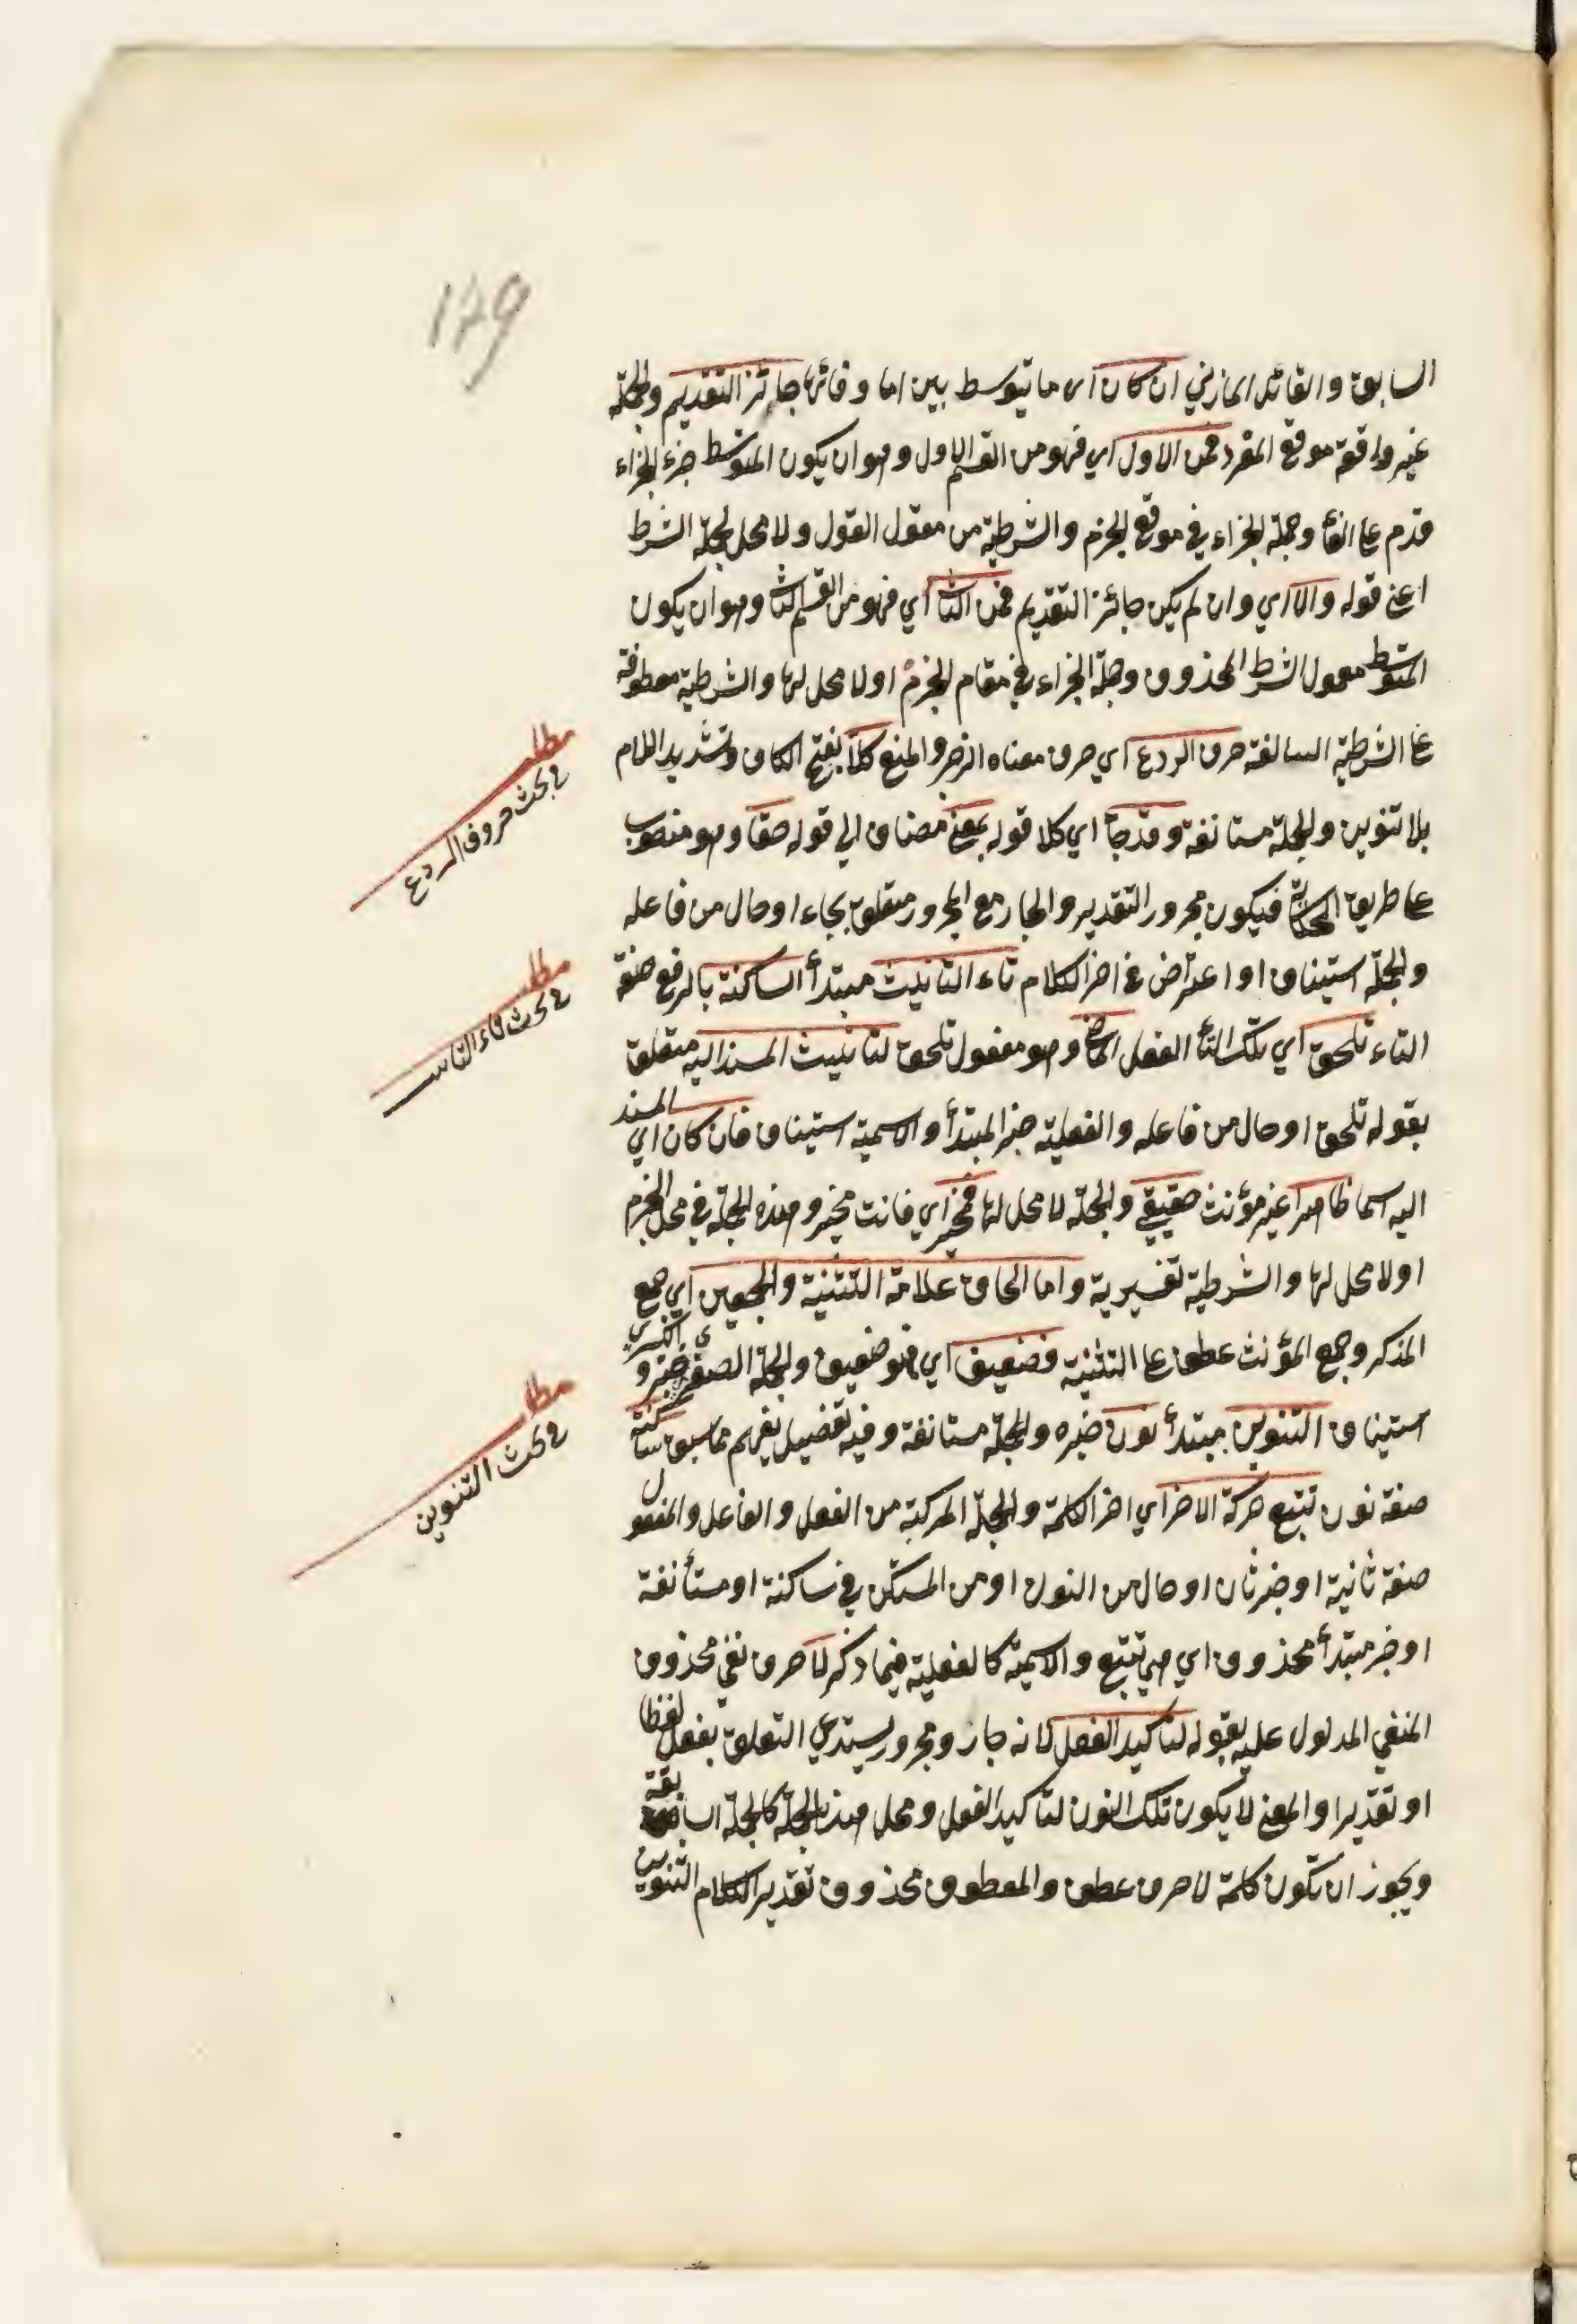 129
السابق والقائل المازني ان كان اى ما يتوسط بين اما وفائها جائز التقديم والجملة
غير واقعة موقع المفرد فمن الاول اي فهو من القسم الاول وهو ان يكون المتوسط جزء الجزاء
قدم على الفأ وجملة الجزاء في موقع الجزم والشرطية من مقول القول ولا محل لجملة الشرط
اعني قوله والا اي وان لم يكن جائز التقديم فمن الثا اي فهو من القسم الثا وهو ان يكون
المتوسط معمول الشرط المحذوف وجملة الجزاء في مقام الجزم اولا محل لها والشرطية معطوفة
على الشرطية السالفة حرف الردع اي حرف معناه الزجر والمنع كلا بفتح الكاف وتشديد اللام
بلا تنوين والجملة مستانفة وقد جأ اي كلا قوله بمعنى مضاف الي قوله حقا وهو منصوب
على طريق الحكاية فيكون مجرور التقدير والجار مع المجرور متعلق بجاء او حال من فاعله
والجملة استيناف او اعتراض في اخر الكلام تاء التانيث مبتدأ الساكنة بالرفع صفة
التاء تلحق اي تلك التأ الفعل الماض وهو مفعول تلحق لتانيث المسند اليه متعلق
بقوله تلحق او حال من فاعله والفعلية خبر المبتدأ والاسمية استيناف فان كان اي المسند
اليه اسما ظاهرا غير مؤنث حقيقي والجملة لا محل لها فمخير اي فانت مخير وهذه الجملة في محل الجزم
اولا محل لها والشرطية تفسيرية واما الحاق علامة التثنية والجمعين اي جمع
المذكر وجمع المؤنث عطف على التثنية فضعيف اي فهو ضعيف والجملة الصغرى خبر والكبرى
استيناف التنوين مبتدأ نون خبره والجملة مستانفة وفيه تفصيل يفهم مما سبق ساكنة
صفة نون تتبع حركة الاخر اي اخر الكلمة والجملة المركبة من الفعل والفاعل والمفعول
صفة ثانية او خبر ثان او حال من النون او من المستكن في ساكنة او مستأنفة
او خبر مبتدأ محذوف اي هي تتبع والاسمية كالفعلية فيما ذكر لا حرف نفي محذوف
المنفي المدلول عليه بقوله لتاكيد الفعل لانه جار ومجرور يستدعي التعلق بفعل لفظا
او تقديرا والمعنى لا يكون تلك النون لتاكيد الفعل ومحل هذه الجملة كالجملة السابقة
ويجوز ان تكون كلمة لا حرف عطف والمعطوف محذوف تقدير الكلام التنوين
مطلب
في بحث حروف الردع
مطلب
في بحث تاء التانيث
مطلب
في بحث التنوين